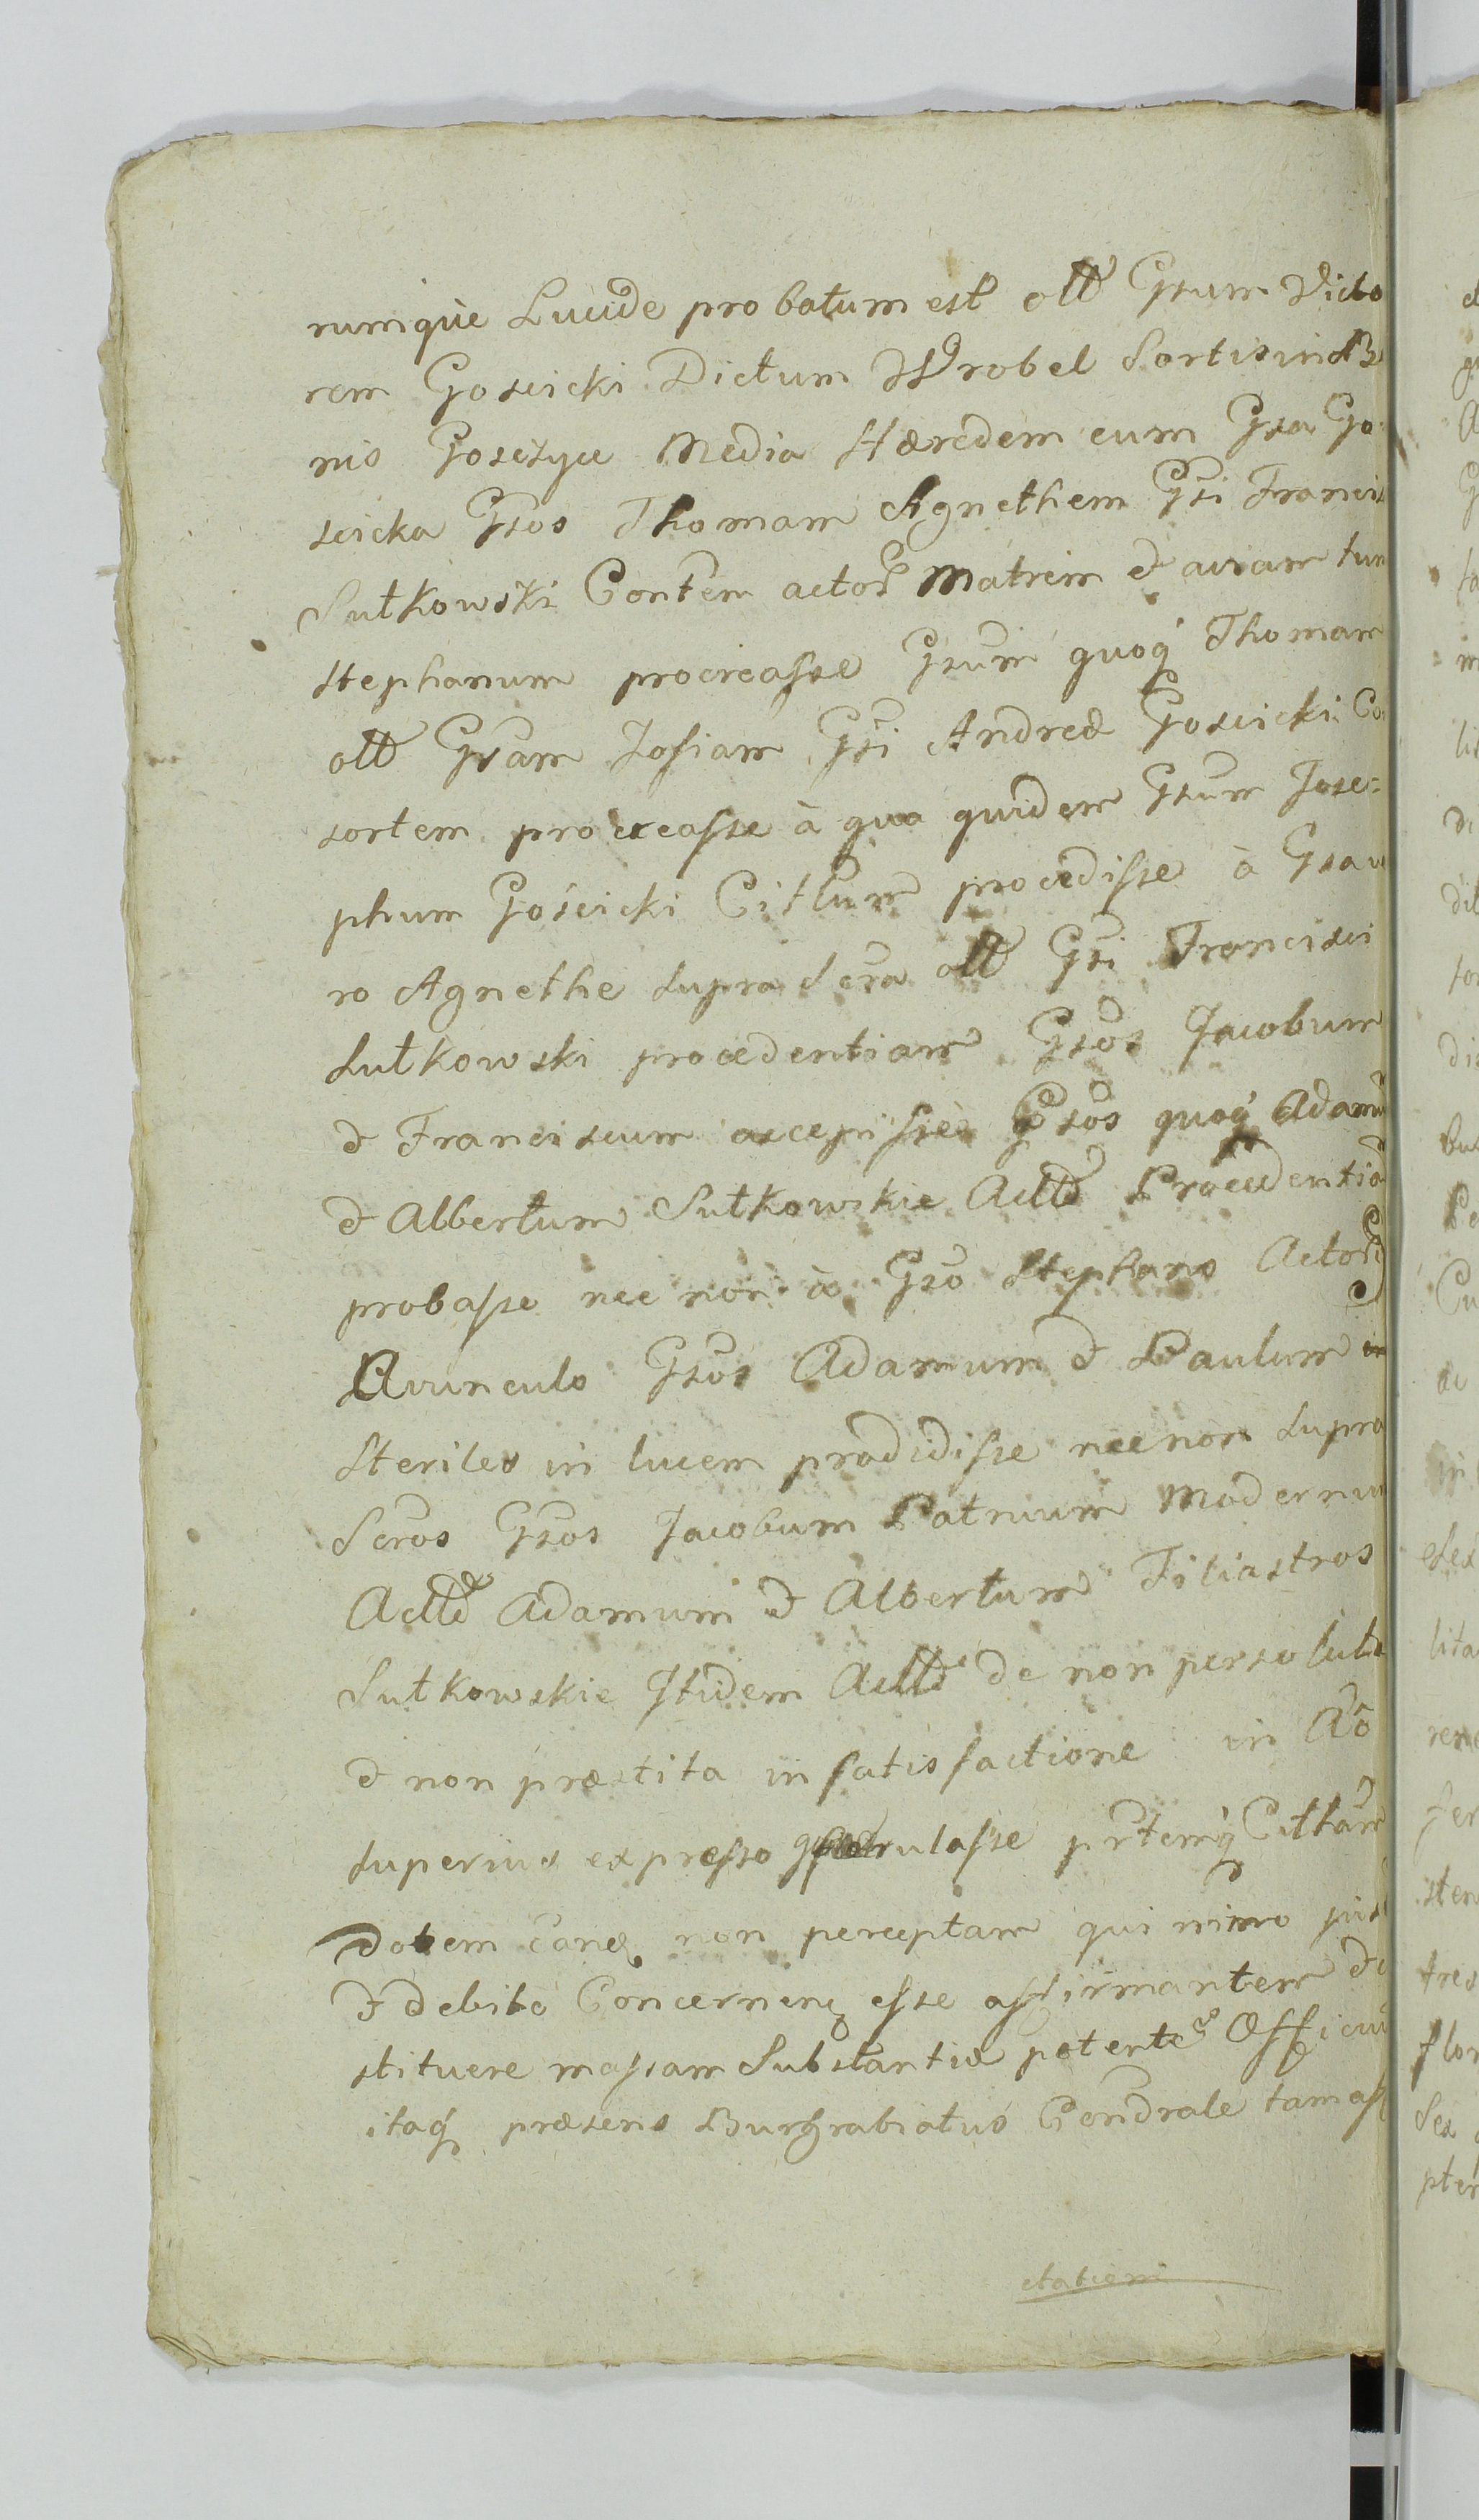 rumque Lucide probatum est olld Gsum Victo
rem Goscicki Dictum Wrobel Sortis in B
nis Gosczyce Media Hæredem cum Gsa Go
scicka Gsos Thomam Agnethem Gsi Francis
Sutkowski Contem actor Matrem & aviam tum
Stephanum procreasse Gsum quoq Thomam
olld Gsam Zofiam Gsi Andreæ Goscicki Co
sortem procreasse à qua quidem Gsum Jose=
phum Gościcki Citlum procedisse à Gsa v
ro Agnethe supra Scra olld Gsi Francisci
Sutkowski procedentiam Gsos Jacobum
& Franciscum accepisse Gsos quoq Adam
& Albertum Sutkowskie Actld Procedentia
probasse nec non à Gso Stephano Actor
Avunculo Gsos Adamum & Paulum
Steriles in lucem prodidisse nec non supra
Scros Gsos Jacobum Patruum Modernu
Actld Adamum & Albertum Filiastros
Sutkowskie Itidem Actld de non persoluta
& non præstita in satisfactione in Ao
superius expresso querulasse prtemq Citlam
Dotem eanq non perceptam qui nimo jus
& debite Concernenq esse affirmantem &
stituere massam Substantiæ petente Officiu
itaq præsens Burgrabiatus Cendrale tam aff
ctationi